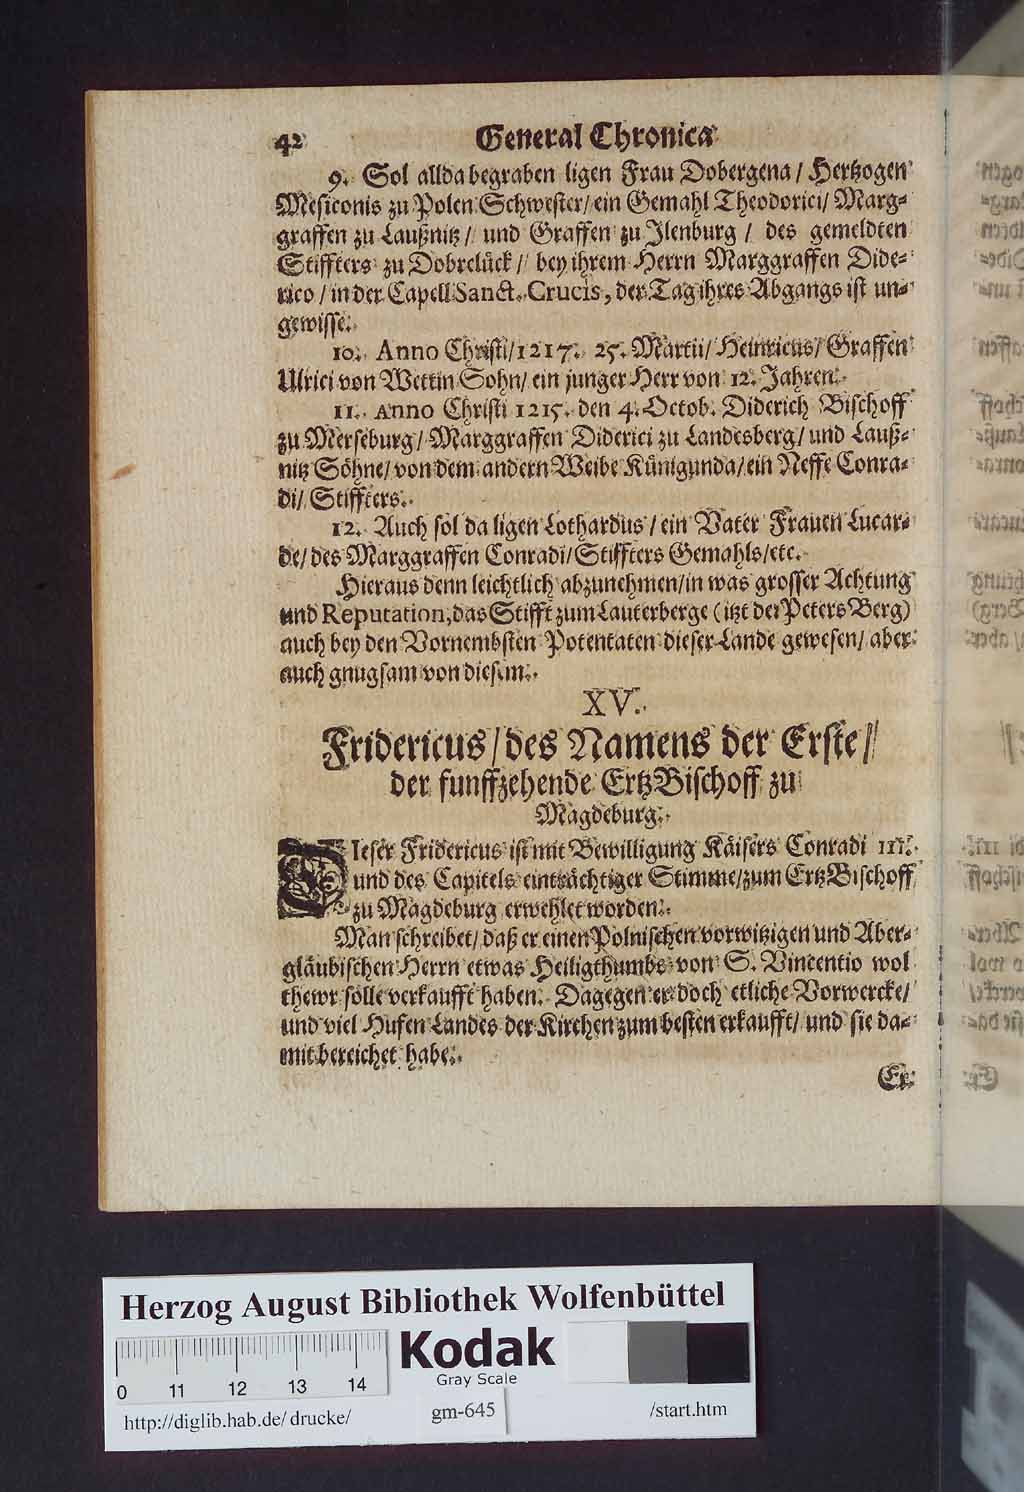 42 General Chronica
9. Sol allda begraben ligen Frau Dobergena / Hertzogen
Mesiconis zu Polen Schwester / ein Gemahl Theodorici / Marg-
graffen zu Laußnitz / und Graffen zu Ilenburg / des gemeldten
Stiffters zu Dobrelück / bey ihrem Herrn Marggraffen Dide-
rico / in der Capell Sanct. Crucis, der Tag ihres Abgangs ist un-
gewisse.
10. Anno Christi / 1217. 25. Martii / Heinricus / Graffen
Ulrici von Wettin Sohn / ein junger Herr von 12. Jahren.
11. Anno Christi 1215. den 4. Octob. Diderich Bischoff
zu Merseburg / Marggraffen Diderici zu Landesberg / und Lauß-
nitz Söhne / von dem andern Weibe Künigunda / ein Neffe Conra-
di / Stiffters.
12. Auch sol da ligen Lothardus / ein Vater Frauen Lucar-
de / des Marggraffen Conradi / Stiffters Gemahls / etc.
Hieraus denn leichtlich abzunehmen / in was grosser Achtung
und Reputation, das Stifft zum Lauterberge (itzt der Peters Berg)
auch bey den Vornembsten Potentaten dieser Lande gewesen / aber
auch gnugsam von diesem.
XV.
Fridericus / des Namens der Erste /
der funffzehende ErtzBischoff zu
Magdeburg.
DIeser Fridericus ist mit Bewilligung Käisers Conradi III.
und des Capitels einträchtiger Stimme / zum ErtzBischoff
zu Magdeburg erwehlet worden.
Man schreibet / daß er einen Polnischen vorwitzigen und Aber-
gläubischen Herrn etwas Heiligthumbs von S. Vincentio wol
thewr solle verkaufft haben. Dagegen er doch etliche Vorwercke /
und viel Hufen Landes der Kirchen zum besten erkaufft / und sie da-
mit bereichet habe.
Er
Herzog August Bibliothek Wolfenbüttel
Kodak
Gray Scale
0 11 12 13 14
http://diglib.hab.de/drucke/ gm-645 /start.htm